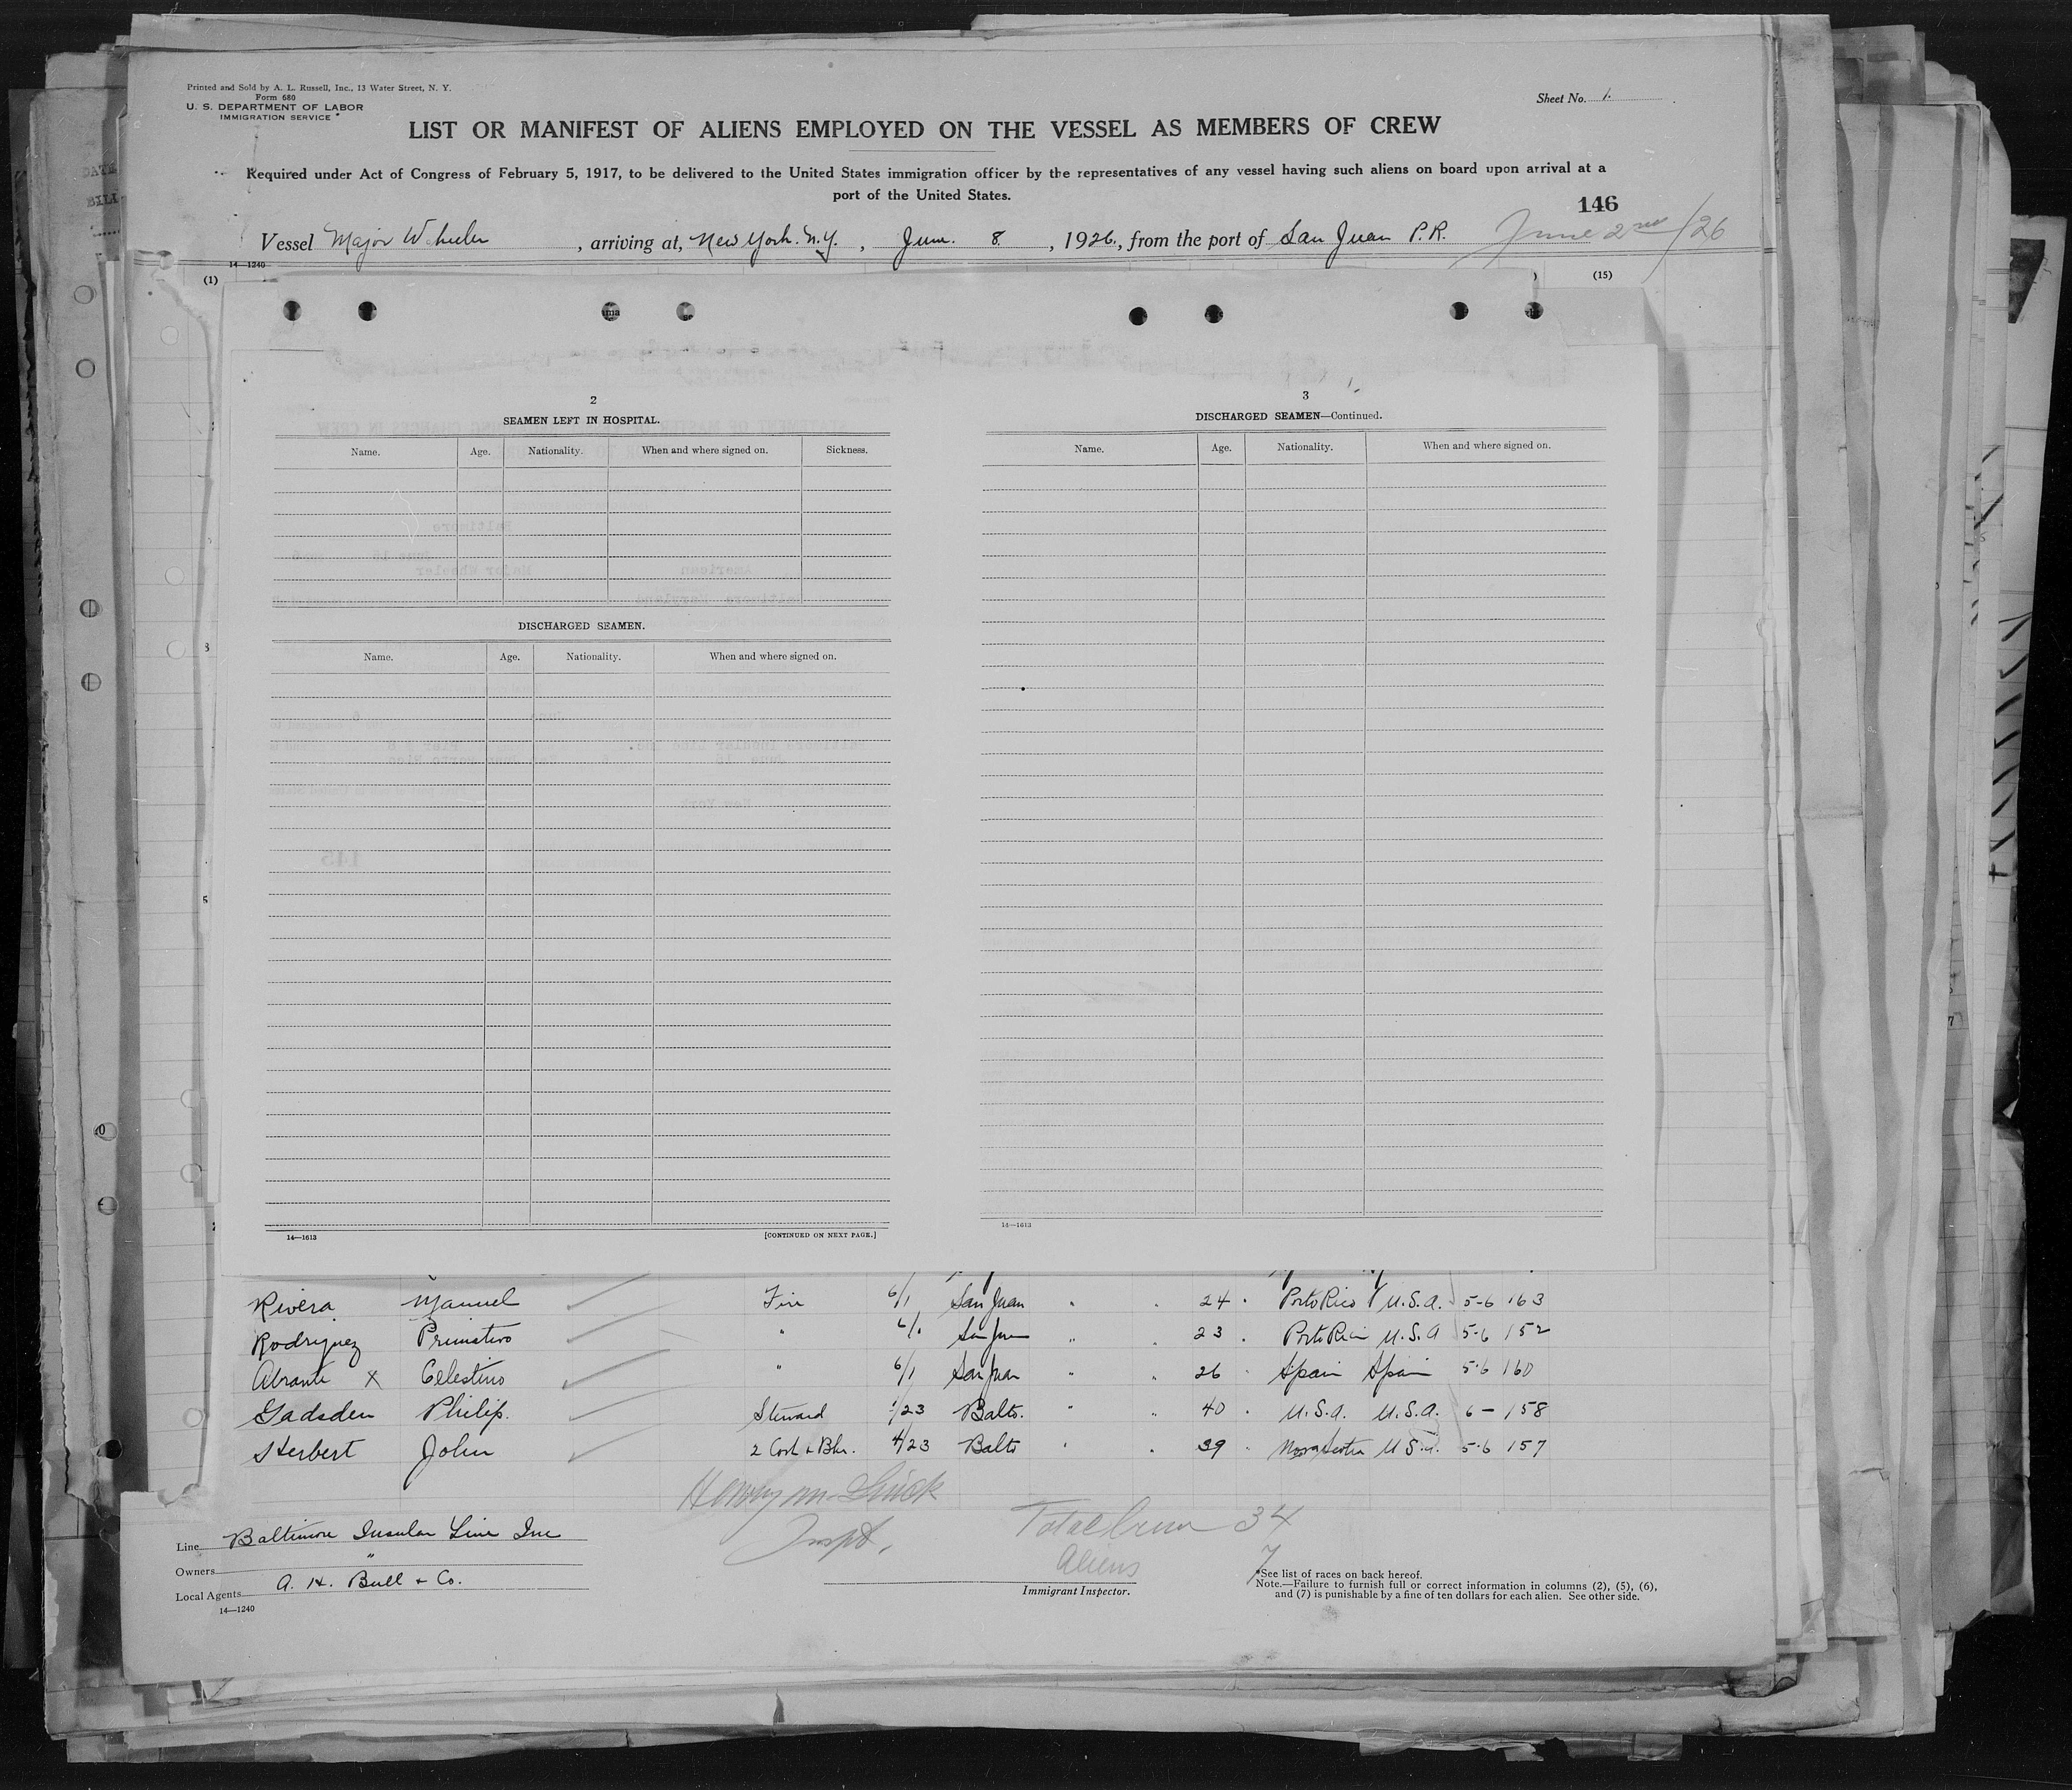 Printed and Sold by A. L. Russell, Inc., 13 Water Street, N. Y.
Form 680
U. S. DEPARTMENT OF LABOR
IMMIGRATION SERVICE
Sheet No. 1.
LIST OR MANIFEST OF ALIENS EMPLOYED ON THE VESSEL AS MEMBERS OF CREW
Required under Act of Congress of February 5, 1917, to be delivered to the United States immigration officer by the representatives of any vessel having such aliens on board upon arrival at a
port of the United States.
146
Vessel Major Wheeler, arriving at, New York. N.Y., June. 8, 1926, from the port of San Juan P.R. June 2nd/26
14—1240
(1) (15)
2
SEAMEN LEFT IN HOSPITAL.
Name. Age. Nationality. When and where signed on. Sickness.
DISCHARGED SEAMEN.
Name. Age. Nationality. When and where signed on.
14—1613 [CONTINUED ON NEXT PAGE.]
3
DISCHARGED SEAMEN—Continued.
Name. Age. Nationality. When and where signed on.
14—1613
Rivera Manuel Fire 6/1 San Juan " " 24 Porto Rico U.S.A. 5-6 163
Rodriguez Primitivo " 6/1 San Juan " " 23 Porto Rico U.S.A 5-6 152
Abrante X Celestino " 6/1 San Juan " " 26 Spain Spain 5-6 160
Gadsden Philip. Steward 1/23 Balto. " " 40 U.S.A. U.S.A. 6 - 158
Herbert John 2 Cook + Bkr. 4/23 Balto " " 39 Nova Scotia U.S.A. 5-6 157
Inspt.
Total Crew 34
Aliens 7
Line Baltimore Insular Line Inc
Owners "
Local Agents A. H. Bull + Co.
14—1240
Immigrant Inspector.
*See list of races on back hereof.
Note.—Failure to furnish full or correct information in columns (2), (5), (6),
and (7) is punishable by a fine of ten dollars for each alien. See other side.